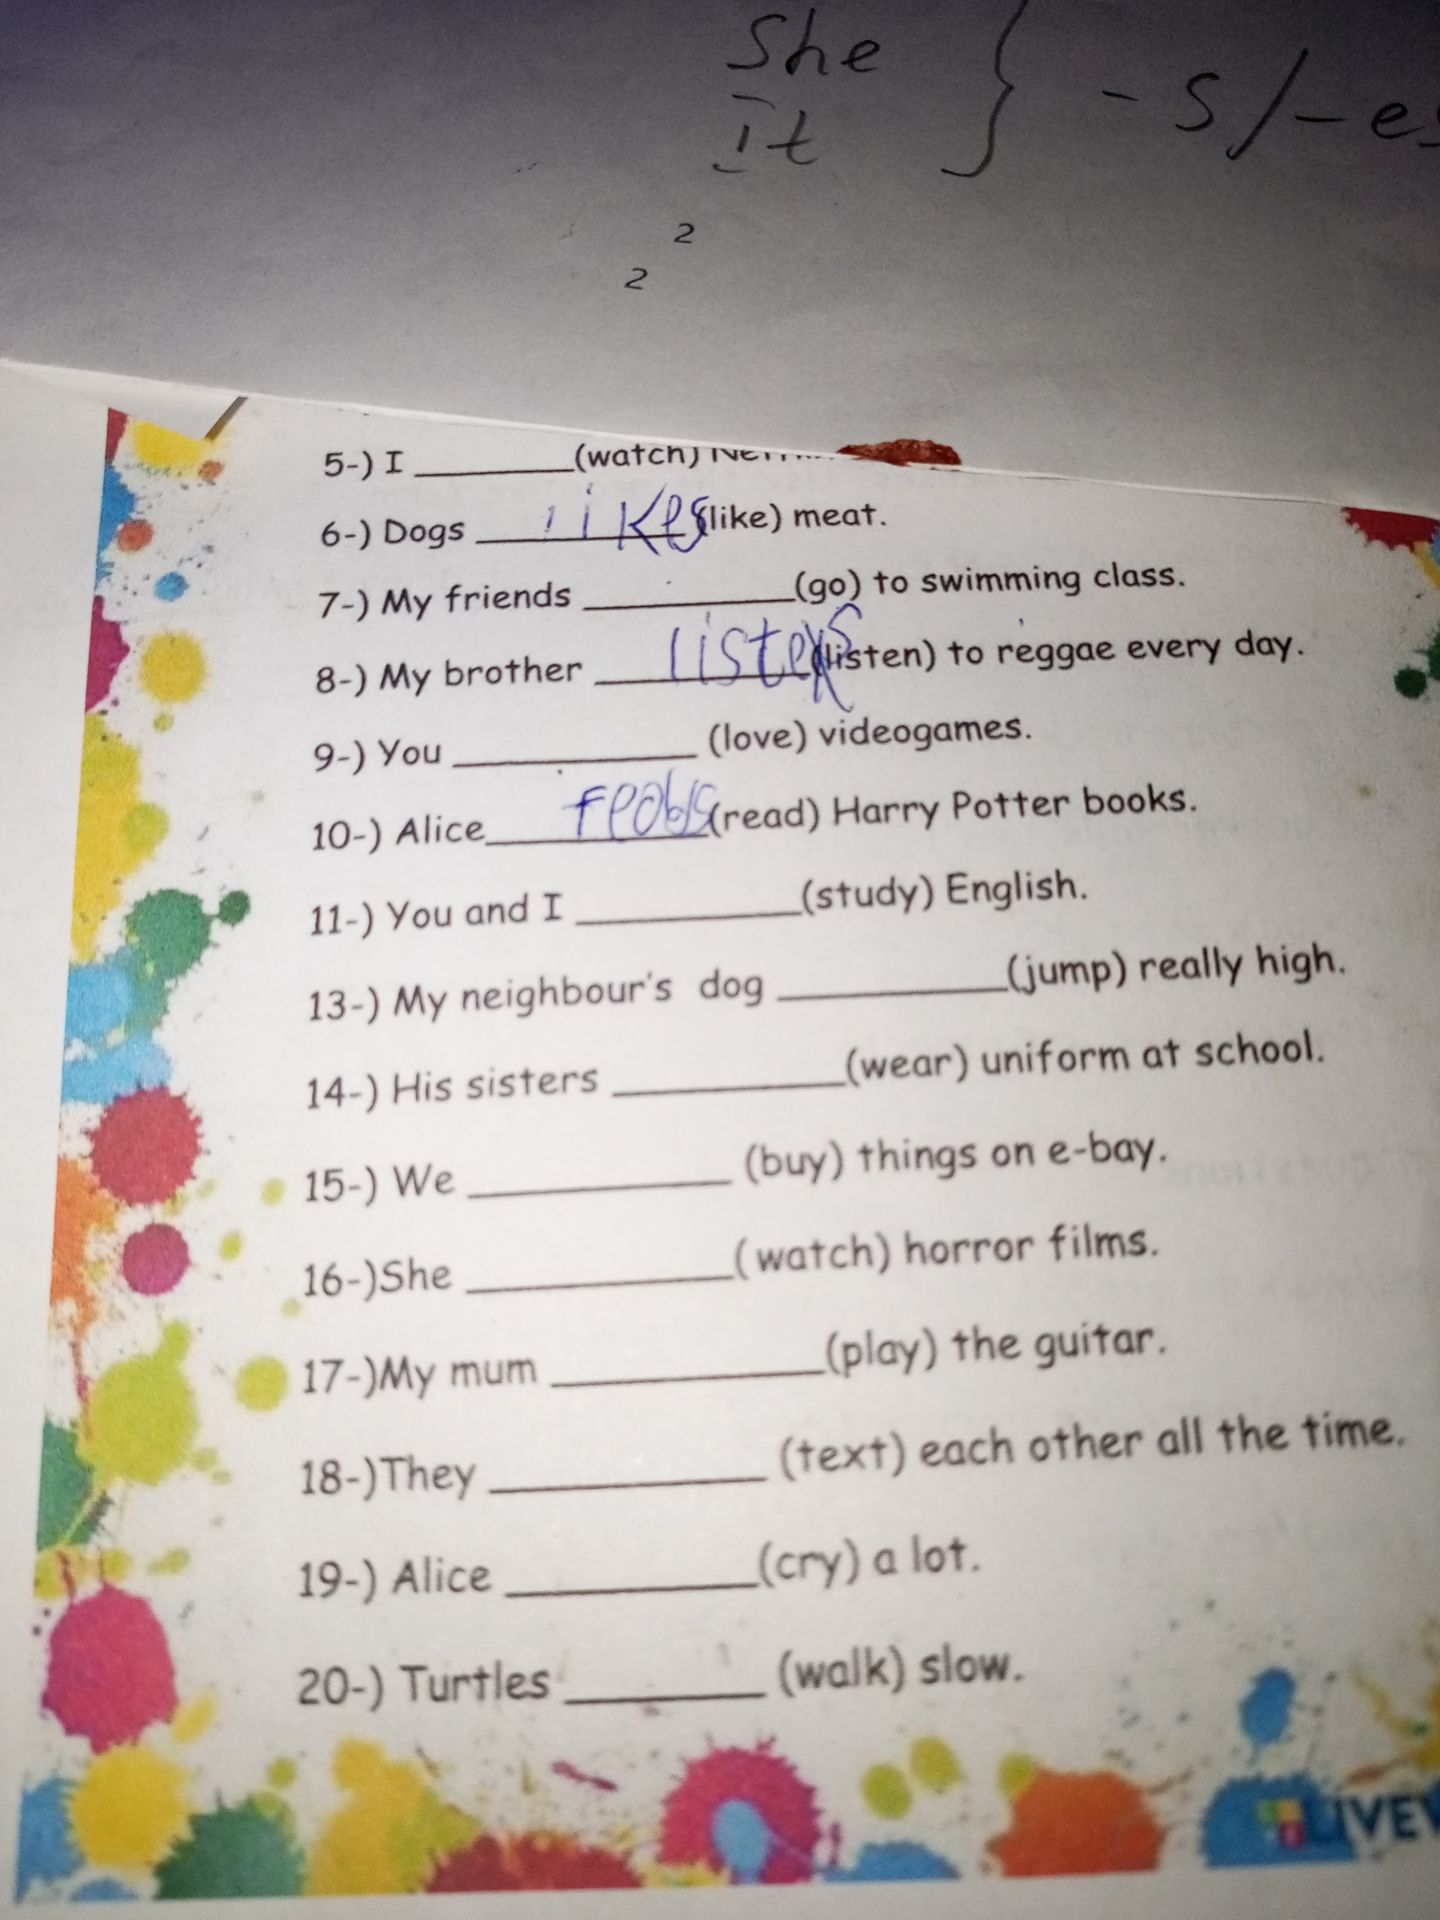 She
It } -s/-es
2
2
5-) I ________(watch)
6-) Dogs likes (like) meat.
7-) My friends ________(go) to swimming class.
8-) My brother (listen) to reggae every day.
9-) You ________ (love) videogames.
10-) Alice (read) Harry Potter books.
11-) You and I ________(study) English.
13-) My neighbour's dog ________(jump) really high.
14-) His sisters ________(wear) uniform at school.
15-) We ________ (buy) things on e-bay.
16-)She ________( watch) horror films.
17-)My mum ________(play) the guitar.
18-)They ________ (text) each other all the time.
19-) Alice ________(cry) a lot.
20-) Turtles ________ (walk) slow.